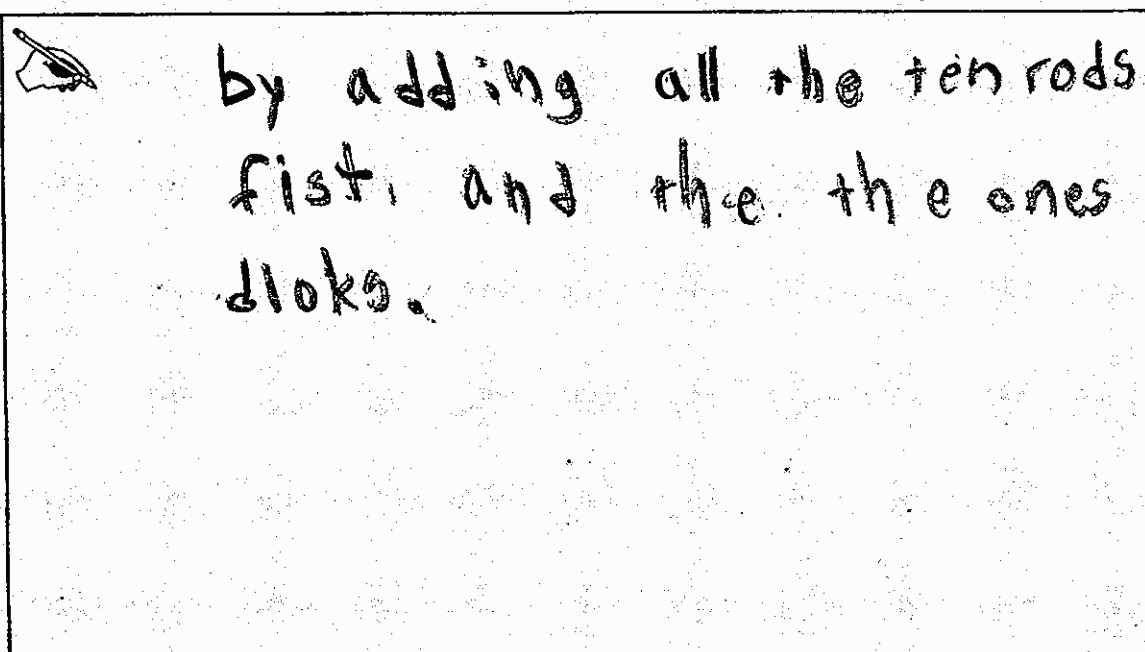 by adding all the ten rods
fist, and the the ones
dloks.